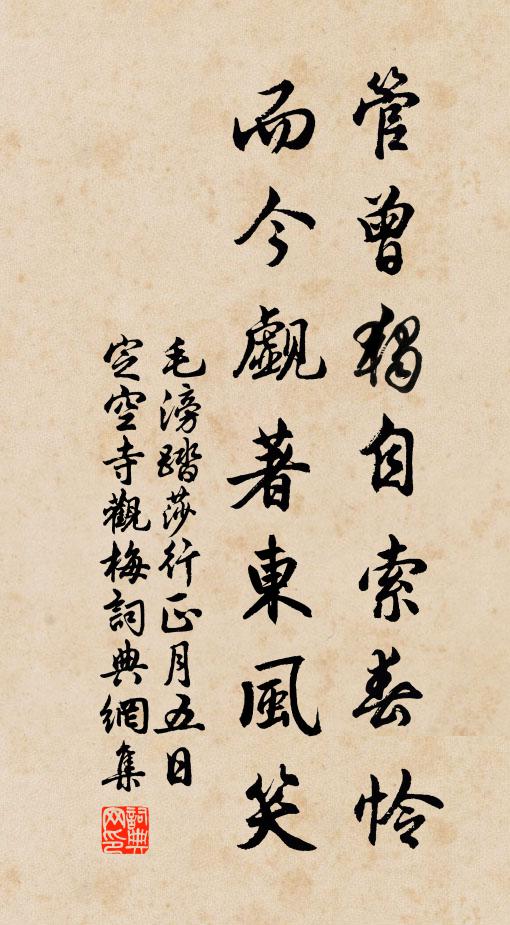 管曾獨自索春怜
而今覷著東風笑
毛滂踏莎行正月五日
定空寺觀梅詞典網集
詞典网印